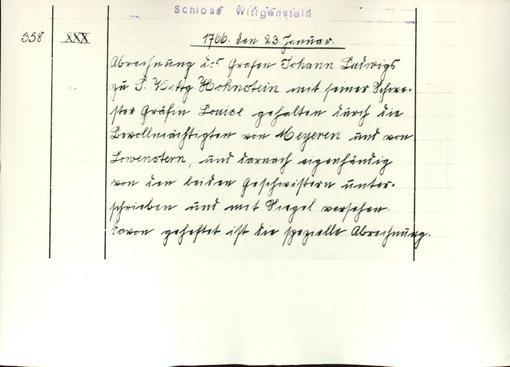 Schloss Wittgenstein
358 XXX 1766. den 23. Januar.
Abrechnung des Grafen Johann Ludwigs
zu S. Wittg Hohnstein mit seiner Schwe-
ster Gräfin Louise gehalten durch die
Bevollmächtigten von Meyeren und von
Löwenstern, und darnach eigenhändig
von den beiden Geschwistern unter-
schrieben und mit Siegel versehen.
Davon geheftet ist die spezielle Abrechnung.